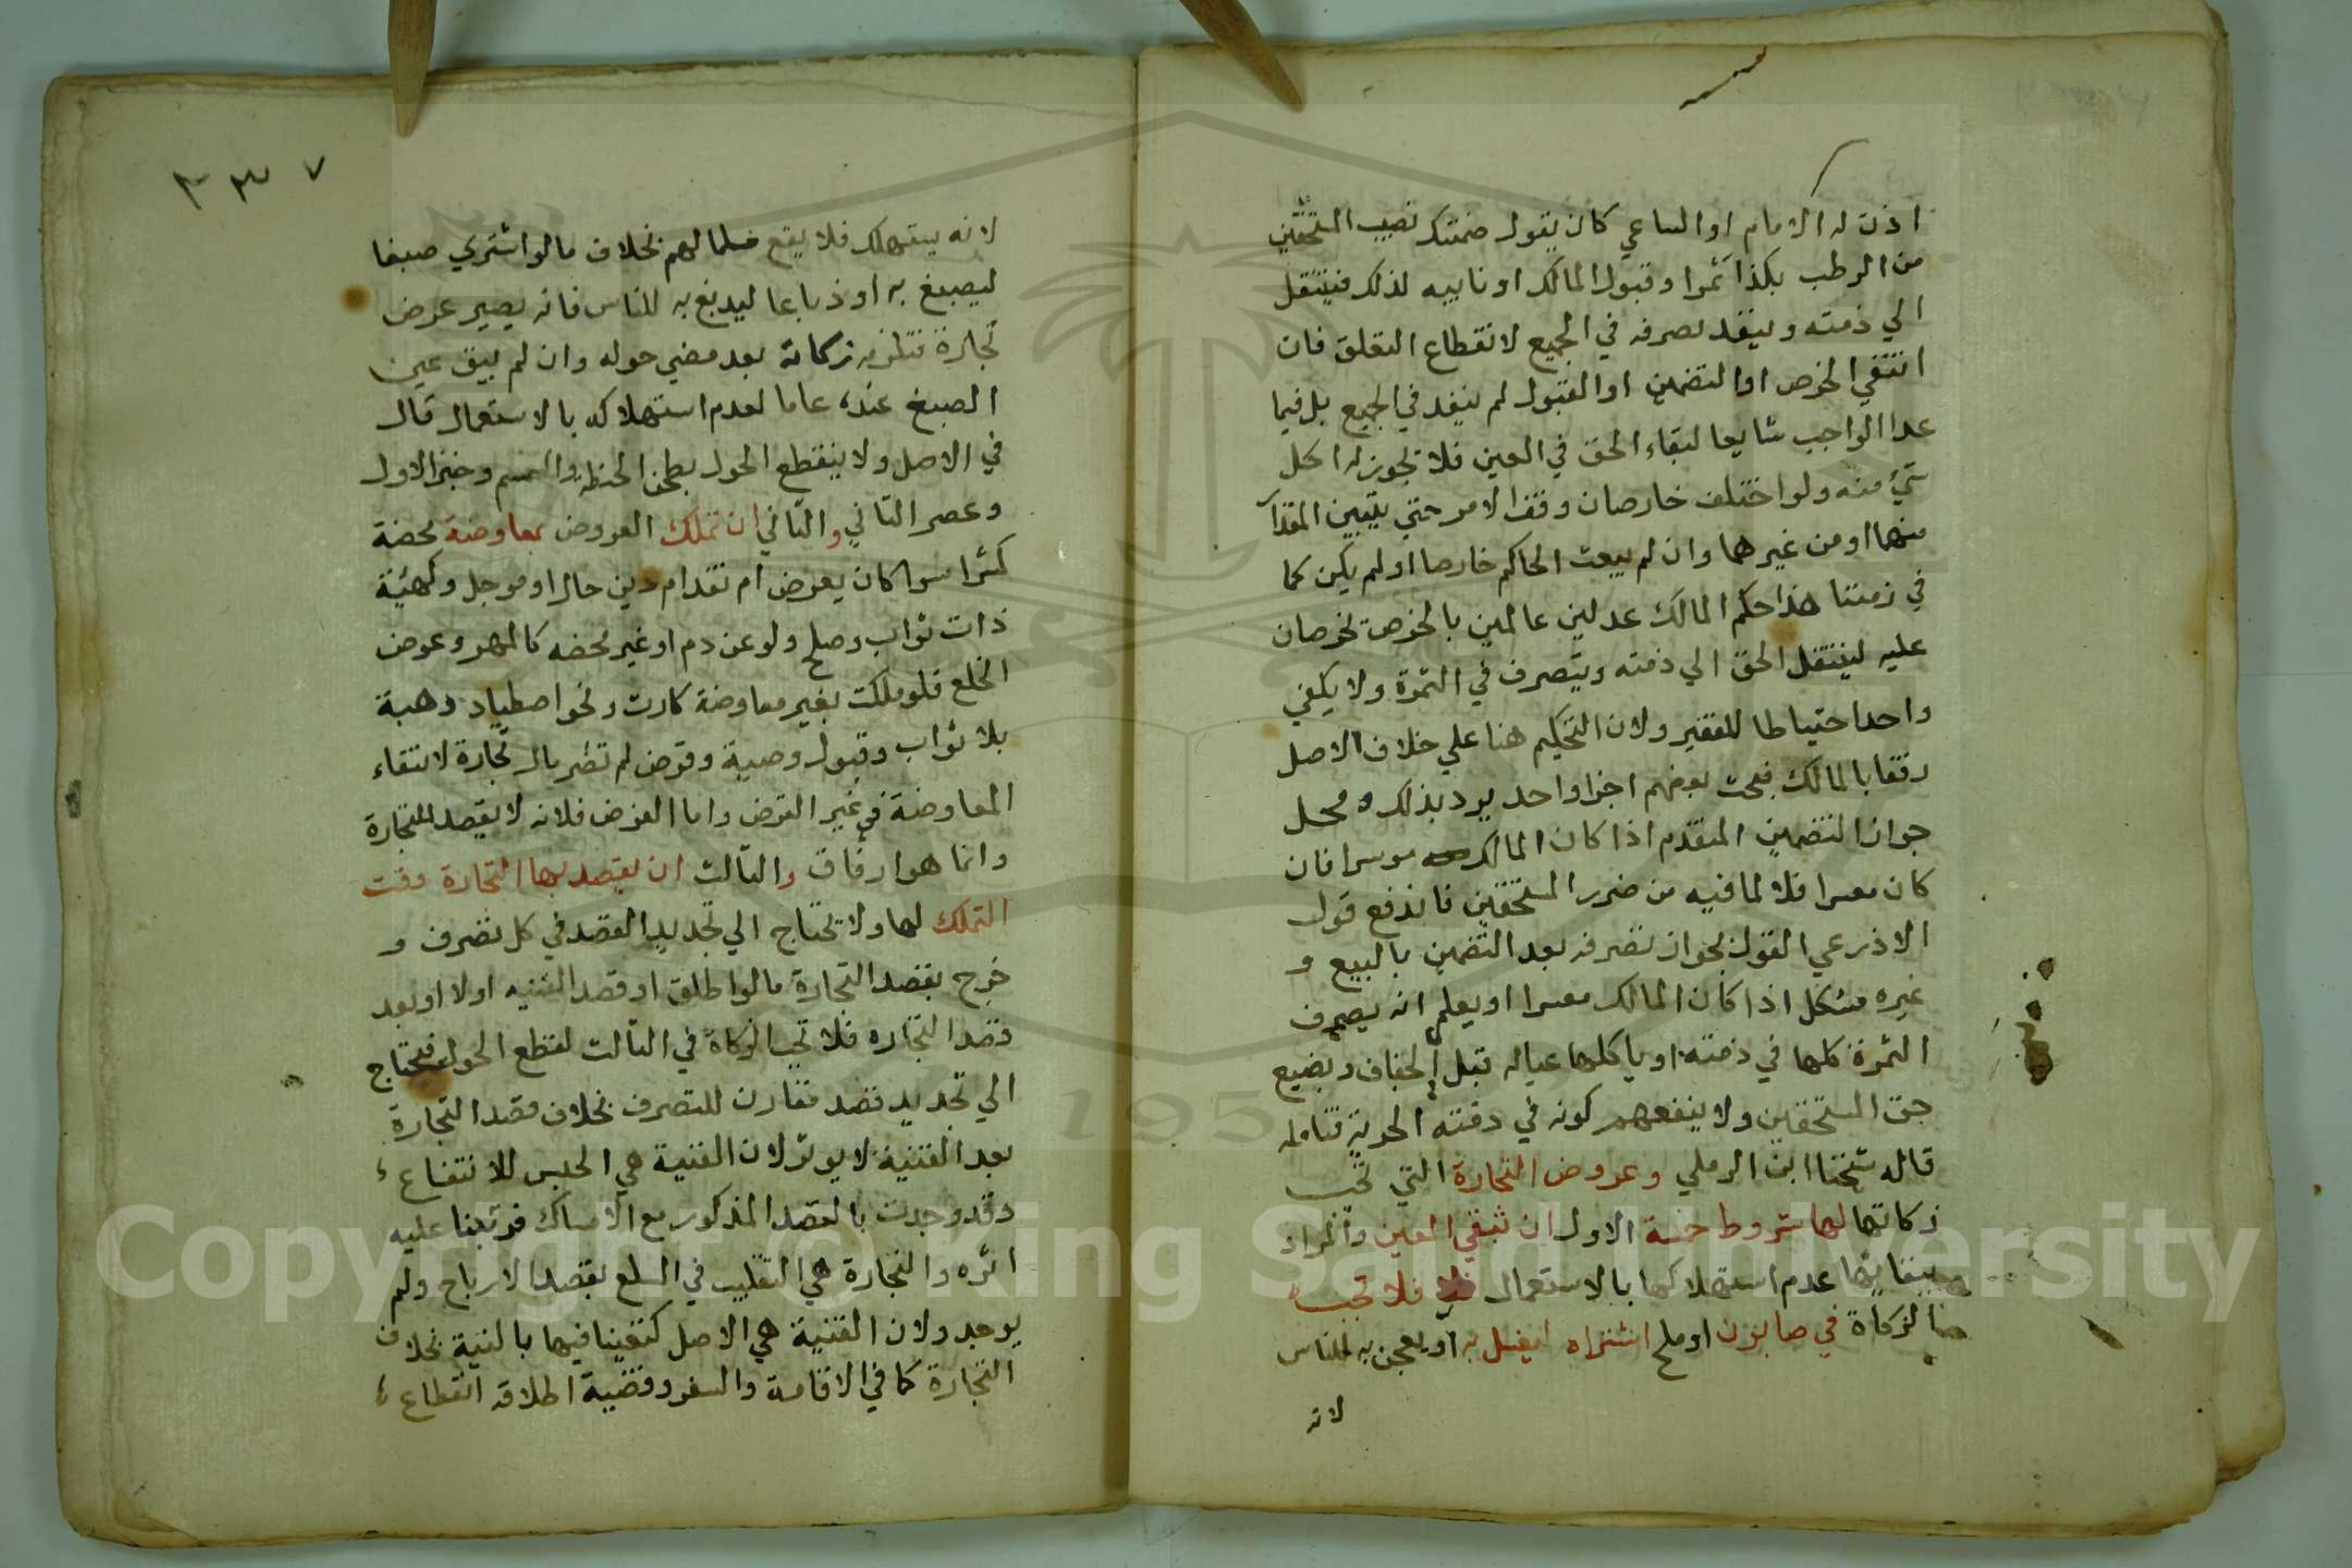 اذن له الامام او الساعي كان يقول ضمنتك نصيب المستحقين
من الرطب بكذا تمرا وقبول المالك او نايبه لذلك فينتقل
الي ذمته وينفد تصرفه في الجميع لانقطاع التعلق فان
انتفي الخرص او التضمين او القبول لم ينفد في الجميع بل فيما
عدا الواجب شايعا لبقاء الحق في العين فلا يجوز له اكل
شيء منه ولو اختلف خارصان وقف الامر حتي يتبين المقدار
منهما او من غيرهما وان لم يبعث الحاكم خارصا او لم يكن كما
في زمننا هذا حكم المالك عدلين عالمين بالخرص يخرصان
عليه لينتقل الحق الي ذمته ويتصرف في الثمرة ولا يكفي
واحد احتياطا للفقير ولان التحكيم هنا علي خلاف الاصل
رفقا بالمالك فبحث بعضهم اجزا واحد يرد بذلك ومحل
جواز التضمين المتقدم اذا كان المالك موسرا فان
كان معسرا فلا لما فيه من ضرر المستحقين فاندفع قول
الاذرعي القول بجواز تصرفه بعد التضمين بالبيع و
غيره مشكل اذا كان المالك معسرا او يعلم انه يصرف
الثمرة كلها في ذمته او ياكلها عياله قبل الجفاف ويضيع
حق المستحقين ولا ينفعهم كونه في ذمته الخربة فتامله
قاله شيخنا ابن الرملي وعروض التجارة التي تجب
زكاتها لها شروط خمسة الاول ان تبقي العين والمراد
ببقائها عدم استهلاكها بالاستعمال فلا تجب
الزكاة في صابون او ملح اشتراه ليغسل به او يعجن به للناس
لانه
٣٣٧
لانه يستهلك فلا يقع مسلما لهم بخلاف ما لو اشتري صبغا
ليصبغ به او دباغا ليدبغ به للناس فانه يصير عرض
تجارة فتلزمه زكاته بعد مضي حوله وان لم يبق عين
الصبغ عنده عاما لعدم استهلاكه بالاستعمال قال
في الاصل ولا ينقطع الحول بطحن الحنطة والسمسم وخبز الاول
وعصر الثاني والثاني ان تملك العروض بمعاوضة محضة
كشرا سوا كان بعرض ام نقد ام دين حال او موجل وكهبة
ذات ثواب وصلح ولو عن دم او غير محضه كالمهر وعوض
الخلع فلو ملكت بغير معاوضة كارث ونحو اصطياد وهبة
بلا ثواب وقبول وصية وقرض لم تصر مال تجارة لانتفاء
المعاوضة في غير القرض واما القرض فلانه لا يقصد للتجارة
وانما هو ارفاق والثالث ان يقصد بها التجارة وقت
التملك لها ولا يحتاج الي تجديد القصد في كل تصرف و
خرج بقصد التجارة ما لو اطلق او قصد القنيه اولا او بعد
قصد التجاره فلا تجب الزكاة في الثالث لقطع الحول فيحتاج
الي تجديد قصد مقارن للتصرف بخلاف قصد التجارة
بعد القنية لا يوثر لان القنية هي الحبس للانتفاع
وقد وجدت بالقصد المذكور مع الامساك فرتبنا عليه
اثره والتجارة هي التقليب في السلع بقصد الارباح ولم
يوجد ولان القنية هي الاصل كتفينا فيها بالنية بخلاف
التجارة كما في الاقامة والسفر وقضية اطلاقه انقطاع
Copyright © King Saud University
195